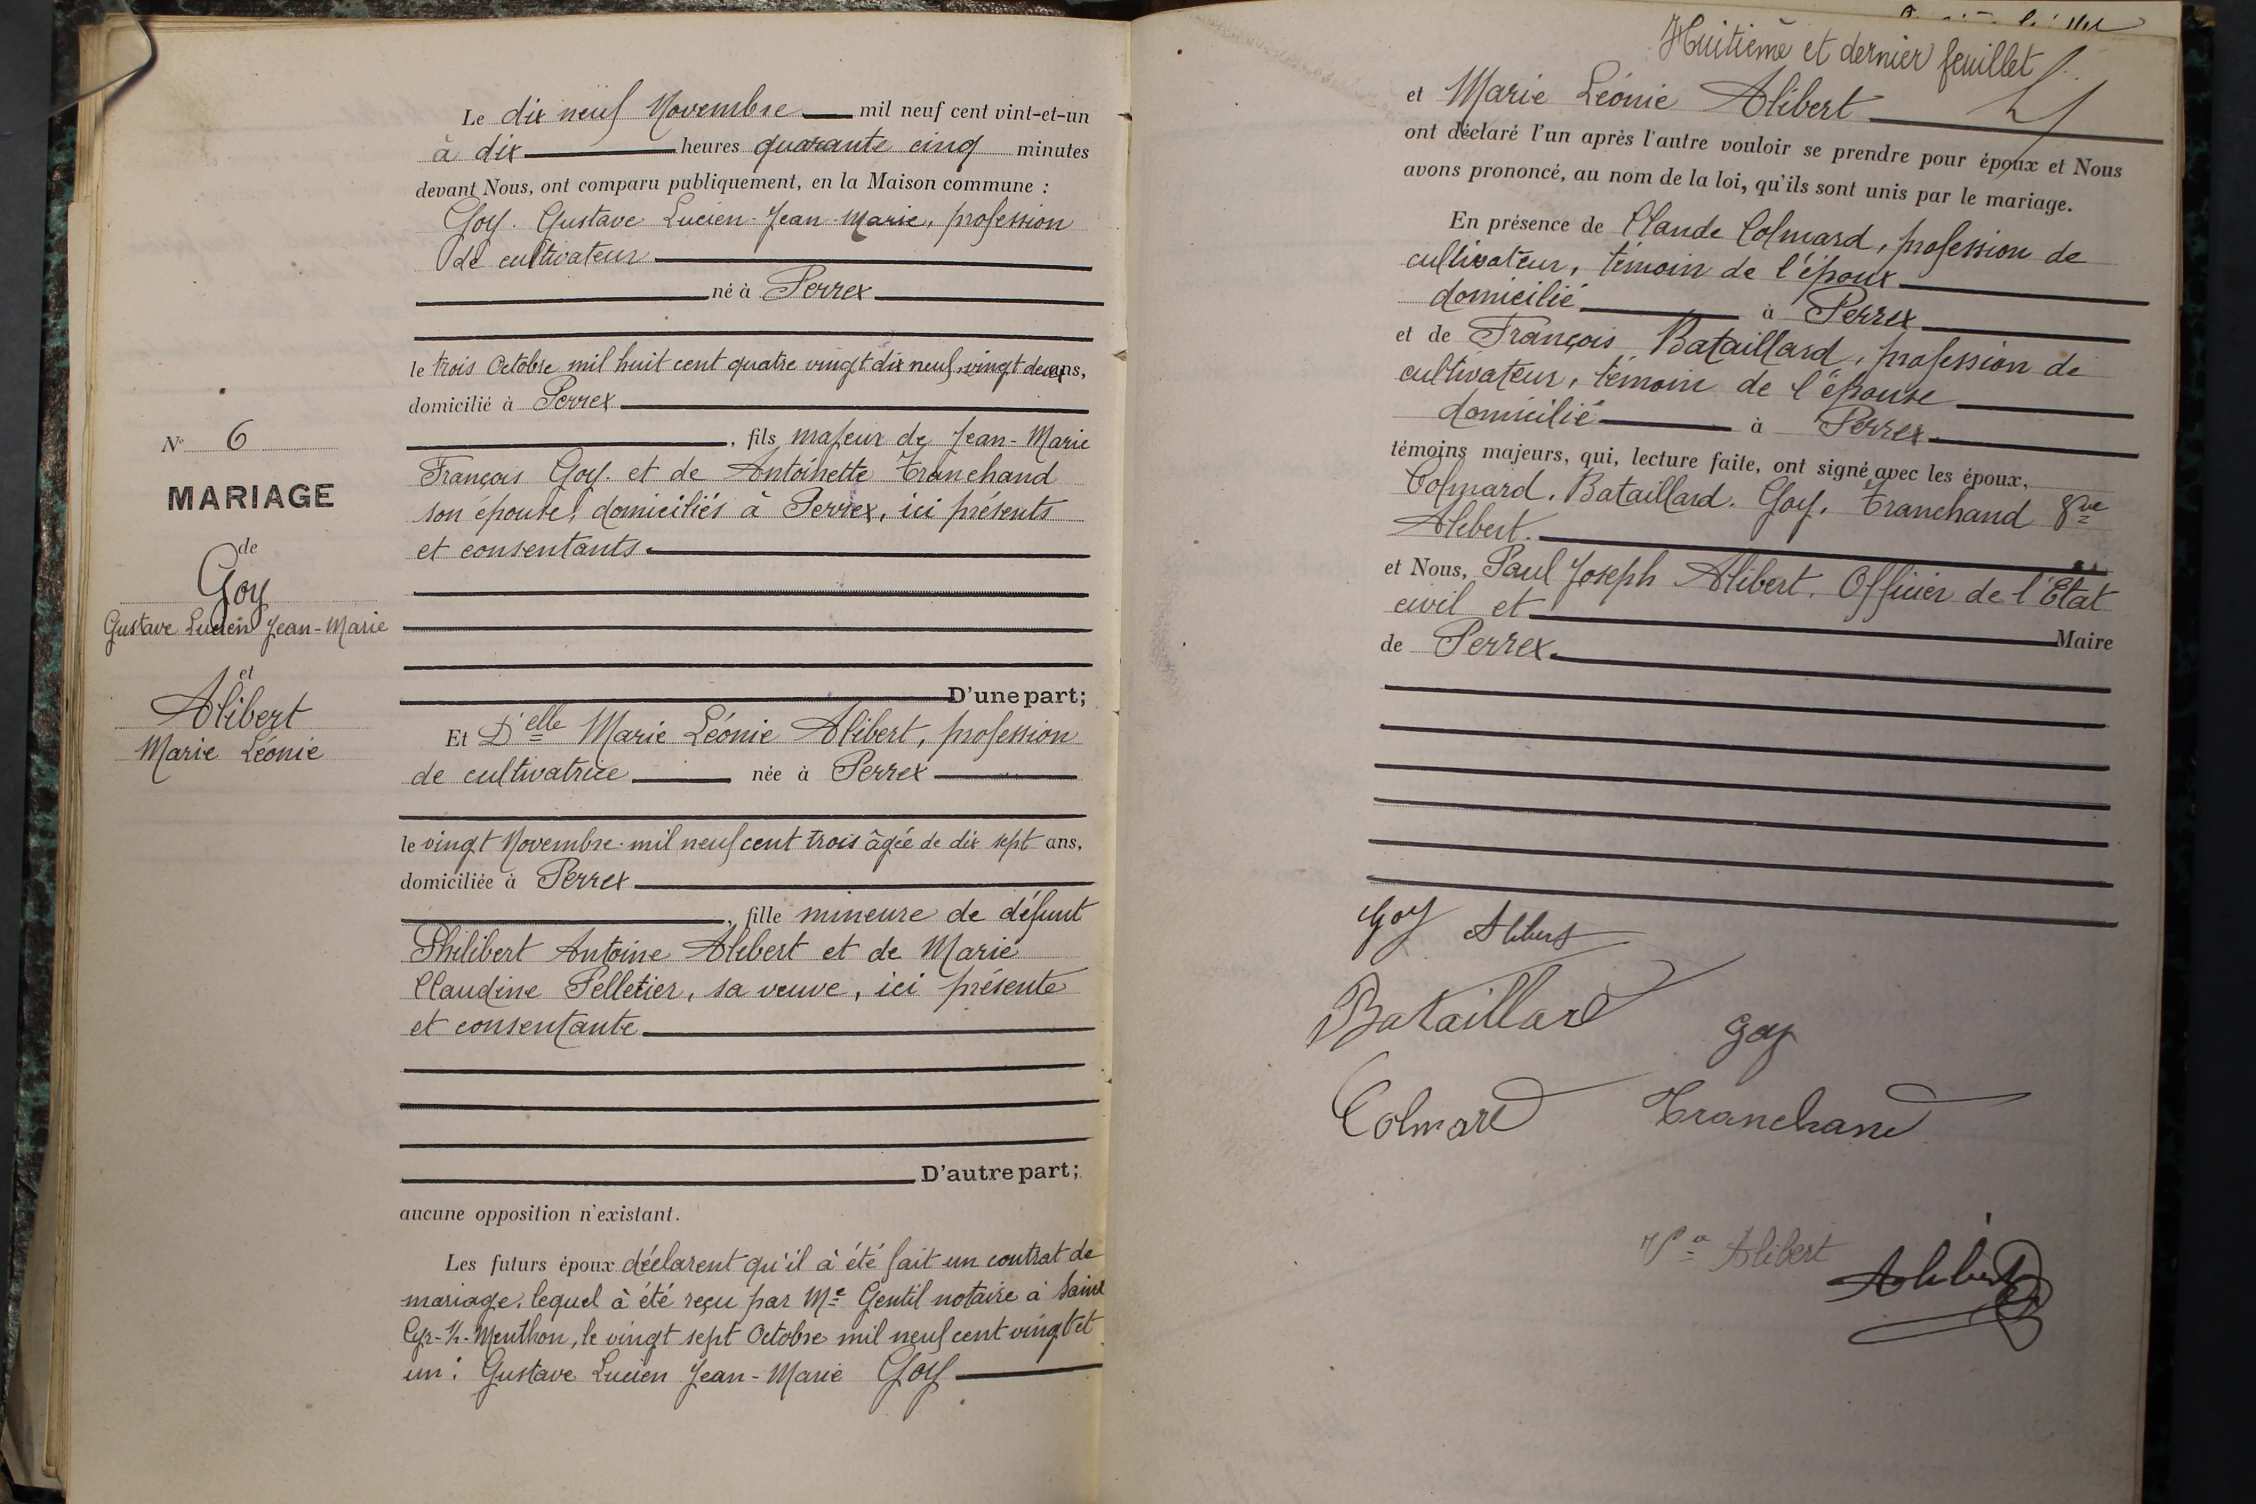 Le dix neuf Novembre mil neuf cent vint-et-un
à dix heures quarante cinq minutes
devant Nous, ont comparu publiquement, en la Maison commune :
Goy. Gustave Lucien Jean-Marie, profession
de cultivateur
né à Perrex
le trois Octobre mil huit cent quatre vingt dix neuf, vingt deux ans,
domicilié à Perrex
, fils majeur de Jean-Marie
François Goy. et de Antoinette Tranchand
son épouse, domiciliés à Perrex, ici présents
et consentants.
D'une part;
Et D'elle Marie Léonie Alibert, profession
de cultivatrice née à Perrex
le vingt Novembre mil neuf cent trois âgée de dix sept ans,
domiciliée à Perrex
, fille mineure de défunt
Philibert Antoine Alibert et de Marie
Claudine Pelletier, sa veuve, ici présente
et consentante
D'autre part;
aucune opposition n'existant.
Les futurs époux déclarent qu'il à été fait un contrat de
mariage, lequel à été reçu par Me Gentil notaire à Saint
Cyr-s/-Menthon, le vingt sept Octobre mil neuf cent vingt et
un : Gustave Lucien Jean-Marie Goy
No 6
MARIAGE
de
Goy
Gustave Lucien Jean-Marie
et
Alibert
Marie Léonie
Huitième et dernier feuillet
et Marie Léonie Alibert
ont déclaré l'un après l'autre vouloir se prendre pour époux et Nous
avons prononcé, au nom de la loi, qu'ils sont unis par le mariage.
En présence de Claude Colmard, profession de
cultivateur, témoin de l'époux
domicilié à Perrex
et de François Bataillard, profession de
cultivateur, témoin de l'épouse
domicilié à Perrex
témoins majeurs, qui, lecture faite, ont signé avec les époux,
Colmard. Bataillard. Goy. Tranchand Vve
Alibert.
et Nous, Paul Joseph Alibert. Officier de l'Etat
civil et Maire
de Perrex.
Goy Alibert
Bataillard
Goy
Colmard Tranchand
Ve Alibert
Alibert